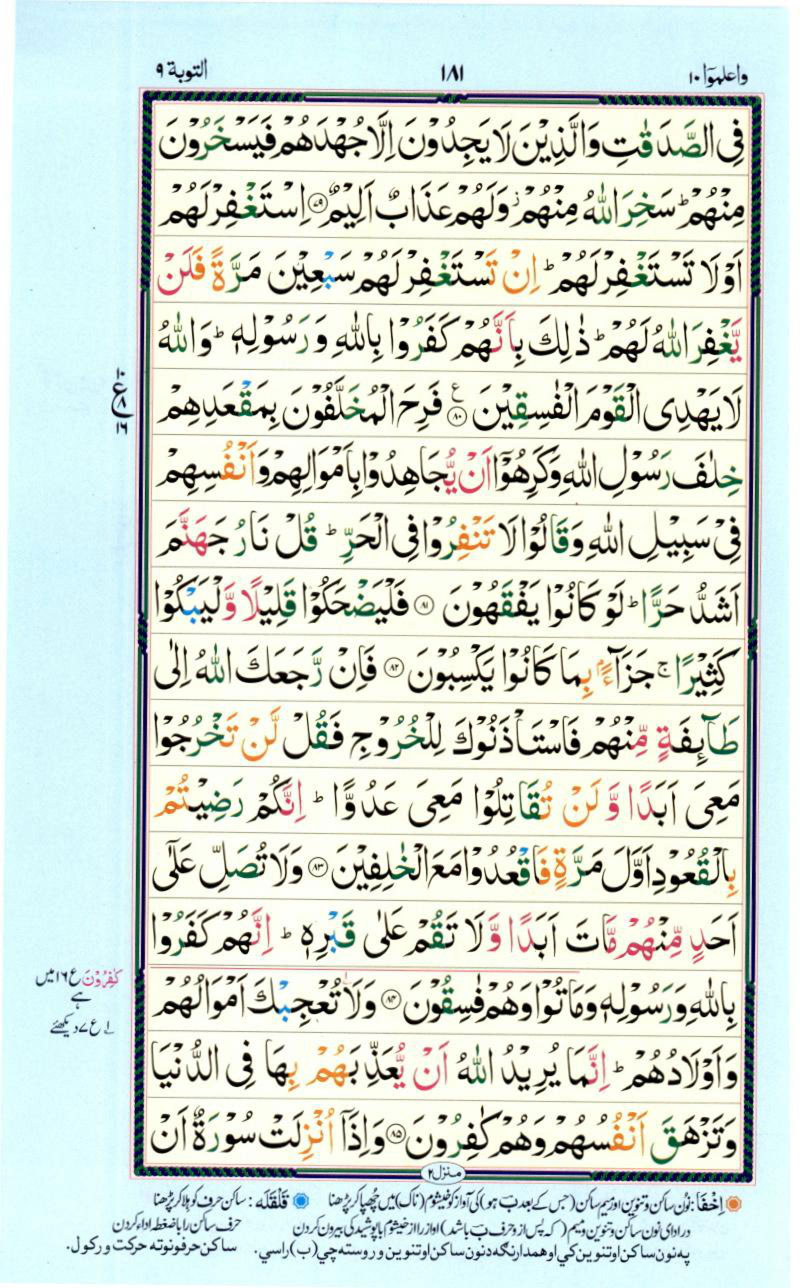 واعلموٓا ١٠
١٨١
التوبة ٩
فِی الصَّدَقٰتِ وَالَّذِیْنَ لَا یَجِدُوْنَ اِلَّا جُهْدَهُمْ فَیَسْخَرُوْنَ
مِنْهُمْ ؕ سَخِرَ اللّٰهُ مِنْهُمْ ؗ وَلَهُمْ عَذَابٌ اَلِیْمٌ ﴿۷۹﴾ اِسْتَغْفِرْ لَهُمْ
اَوْ لَا تَسْتَغْفِرْ لَهُمْ ؕ اِنْ تَسْتَغْفِرْ لَهُمْ سَبْعِیْنَ مَرَّةً فَلَنْ
یَّغْفِرَ اللّٰهُ لَهُمْ ؕ ذٰلِكَ بِاَنَّهُمْ كَفَرُوْا بِاللّٰهِ وَ رَسُوْلِهٖ ؕ وَاللّٰهُ
لَا یَهْدِی الْقَوْمَ الْفٰسِقِیْنَ ﴿۸۰﴾ فَرِحَ الْمُخَلَّفُوْنَ بِمَقْعَدِهِمْ
خِلٰفَ رَسُوْلِ اللّٰهِ وَكَرِهُوْۤا اَنْ یُّجَاهِدُوْا بِاَمْوَالِهِمْ وَاَنْفُسِهِمْ
فِیْ سَبِیْلِ اللّٰهِ وَقَالُوْا لَا تَنْفِرُوْا فِی الْحَرِّ ؕ قُلْ نَارُ جَهَنَّمَ
اَشَدُّ حَرًّا ؕ لَوْ كَانُوْا یَفْقَهُوْنَ ﴿۸۱﴾ فَلْیَضْحَكُوْا قَلِیْلًا وَّلْیَبْكُوْا
كَثِیْرًا ۚ جَزَآءًۢ بِمَا كَانُوْا یَكْسِبُوْنَ ﴿۸۲﴾ فَاِنْ رَّجَعَكَ اللّٰهُ اِلٰی
طَآىِٕفَةٍ مِّنْهُمْ فَاسْتَاْذَنُوْكَ لِلْخُرُوْجِ فَقُلْ لَّنْ تَخْرُجُوْا
مَعِیَ اَبَدًا وَّ لَنْ تُقَاتِلُوْا مَعِیَ عَدُوًّا ؕ اِنَّكُمْ رَضِیْتُمْ
بِالْقُعُوْدِ اَوَّلَ مَرَّةٍ فَاقْعُدُوْا مَعَ الْخٰلِفِیْنَ ﴿۸۳﴾ وَلَا تُصَلِّ عَلٰۤی
اَحَدٍ مِّنْهُمْ مَّاتَ اَبَدًا وَّ لَا تَقُمْ عَلٰی قَبْرِهٖ ؕ اِنَّهُمْ كَفَرُوْا
بِاللّٰهِ وَرَسُوْلِهٖ وَمَاتُوْا وَهُمْ فٰسِقُوْنَ ﴿۸۴﴾ وَلَا تُعْجِبْكَ اَمْوَالُهُمْ
وَاَوْلَادُهُمْ ؕ اِنَّمَا یُرِیْدُ اللّٰهُ اَنْ یُّعَذِّبَهُمْ بِهَا فِی الدُّنْیَا
وَتَزْهَقَ اَنْفُسُهُمْ وَهُمْ كٰفِرُوْنَ ﴿۸۵﴾ وَاِذَاۤ اُنْزِلَتْ سُوْرَةٌ اَنْ
۱۰ ع ۸ ۱۶
كٰفِرُوْنَ ع ۱۶ میں
ہے
ع ۷ دیکھئے
منزل ۲
اِخْفَا: نون ساکن و تنوین اور میم ساکن (جس کے بعد ب ہو) کی آواز کو خیشوم (ناک) میں چُھپا کر پڑھنا
قَلْقَلَہ: ساکن حرف کو ہلا کر پڑھنا
در ادای نون ساکن و تنوین و میم (که پس از و حرف ب باشد) آواز را از خیشوم با پوشیدگی بیرون کردن
حرف ساکن را با ضغطه ادا کردن
په نون ساکن او تنوین کي او همدارنګه ده نون ساکن او تنوین و روسته چي (ب) راسي.
ساکن حرفونو ته حرکت ورکول.